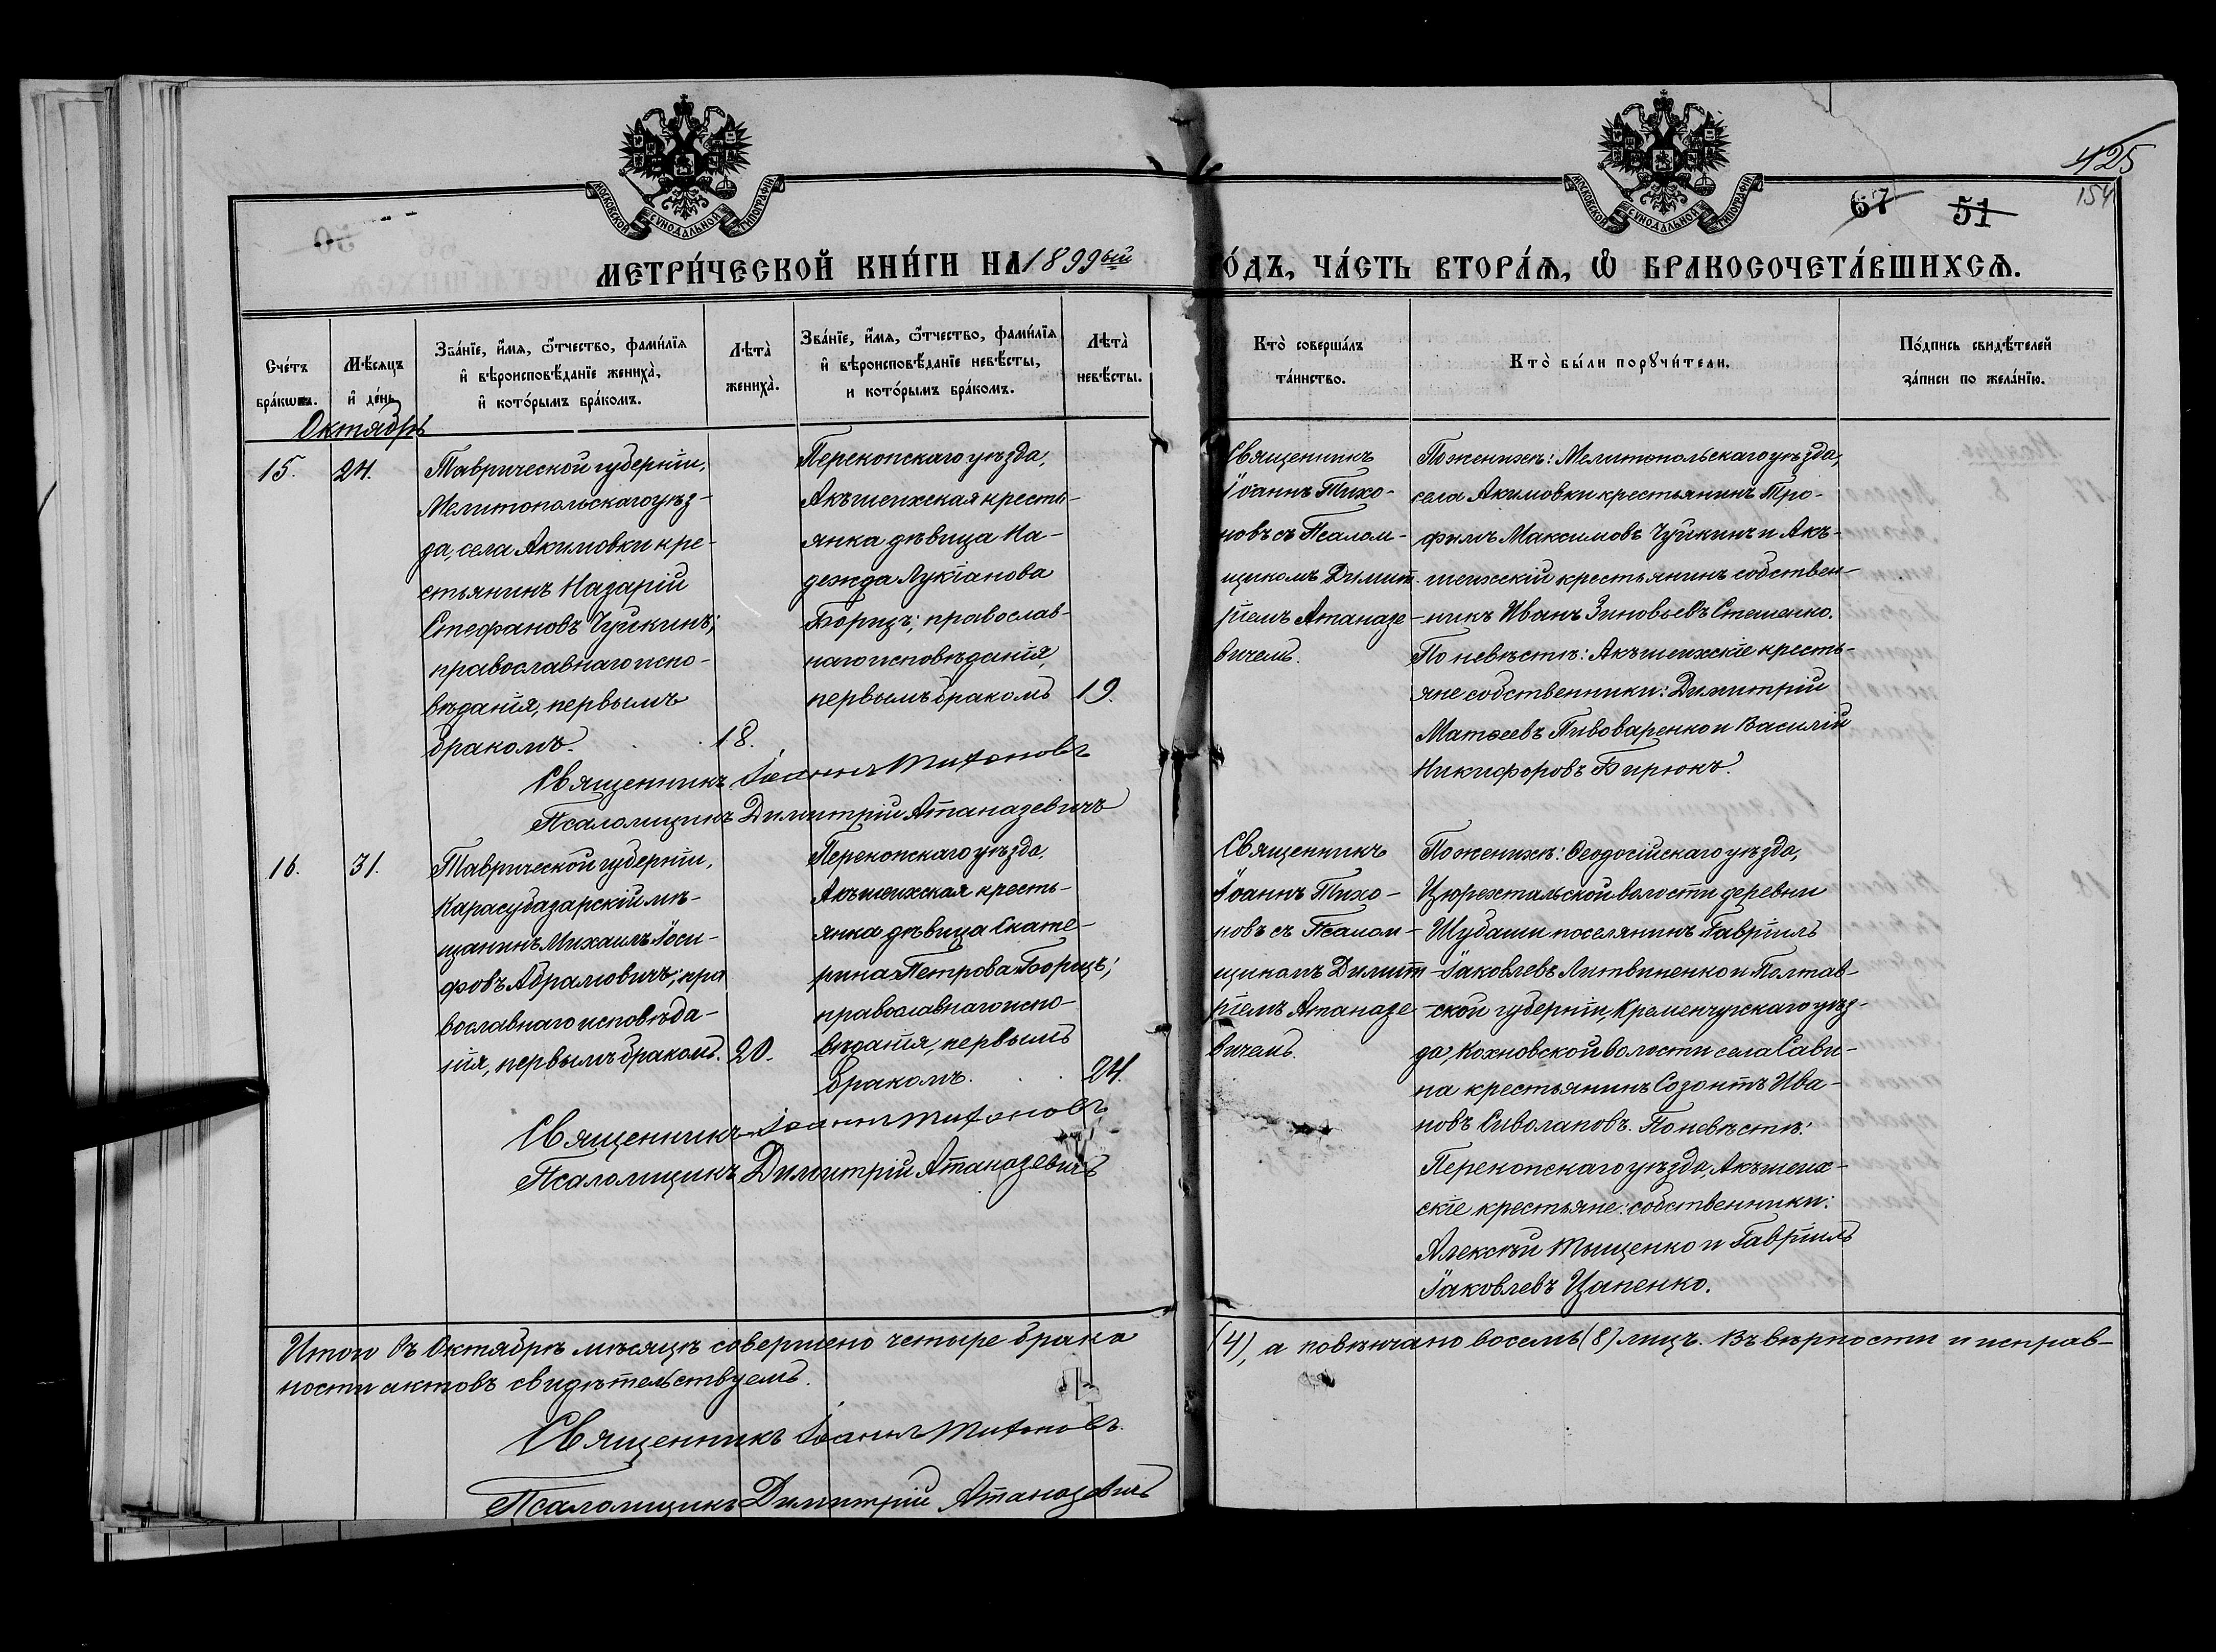 425
154
67
51
МОСКОВСКОЙ СѴНОДАЛЬНОЙ ТИПОГРАФІИ.
МОСКОВСКОЙ СѴНОДАЛЬНОЙ ТИПОГРАФІИ.
МЕТРИ́ЧЕСКОЙ КНИ́ГИ НА 1899ый
О́ДЪ, ЧА́СТЬ ВТОРА́Ѧ, Ѽ БРАКОСОЧЕТА́ВШИХСѦ.
Сче́тъ
бра́кωвъ.
Мѣ́сяцъ
и҆ де́нь.
Зва́нїе, и҆́мѧ, ѻ҆́тчество, фами́лїѧ
и҆ вѣроисповѣ́данїе жениха̀,
и҆ кото́рымъ бра́комъ.
Лѣта̀
жениха̀.
Зва́нїе, и҆́мѧ, ѻ҆́тчество, фами́лїѧ
и҆ вѣроисповѣ́данїе невѣ́сты,
и кото́рымъ бра́комъ.
Лѣта̀
невѣ́сты.
Кто̀ соверша́лъ
та́инство.
Кто̀ бы́ли порꙋчи́тели.
По́дпись свидѣ́телей
за́писи по жела́нїю.
Октябрь
15.
24.
Таврической губерніи,
Мелитопольскаго уѣз-
да, села Акимовки кре-
стьянинъ Назарій
Стефановъ Чуйкинъ;
православнаго испо-
вѣданія, первымъ
бракомъ.
18.
Перекопскаго уѣзда,
Акъшеихская кресть-
янка дѣвица На-
дежда Лукіанова
Борищъ; православ-
наго исповѣданія,
первымъ бракомъ
19.
Священникъ
Іоаннъ Тихо-
новъ съ Псалом-
щикомъ Димит-
ріемъ Атаназе-
вичемъ.
По женихѣ: Мелитопольскаго уѣзда,
села Акимовки крестьянинъ Тро-
фимъ Максимовъ Чуйкинъ и Акъ-
шеихскій крестьянинъ собствен-
никъ Иванъ Зиновьевъ Стешенко.
По невѣстѣ: Акъшеихскіе кресть-
яне собственники: Димитрій
Матѳеевъ Пивоваренко и Василій
Никифоровъ Бирюкъ.
Священникъ Іоаннъ Тихоновъ
Псаломщикъ Димитрій Атаназевичъ
16.
31.
Таврической губерніи,
Карасубазарскій мѣ-
щанинъ Михаилъ Іоси-
фовъ Абрамовичъ; пра
вославнаго исповѣда-
нія, первымъ бракомъ.
20.
Перекопскаго уѣзда,
Акъшеихская кресть-
янка дѣвица Екате-
рина Петрова Борищъ;
православнаго испо-
вѣданія, первымъ
бракомъ.
24.
Священникъ
Іоаннъ Тихо-
новъ съ Псалом-
щикомъ Димит-
ріемъ Атаназе-
вичемъ.
По женихѣ: Ѳеодосійскаго уѣзда,
Цюрехтальской волости деревни
Шубаши поселянинъ Гавріилъ
Іаковлевъ Литвиненко и Полтав-
ской губерніи, Кременчугскаго уѣз-
да, Кохновской волости села Сави-
на крестьянинъ Созонтъ Ива-
новъ Сиволаповъ. По невѣстѣ:
Перекопскаго уѣзда, Акъшеих-
скіе крестьяне: собственники:
Алексѣй Тыщенко и Гавріилъ
Іаковлевъ Цапенко.
Священникъ Іоаннъ Тихоновъ
Псаломщикъ Димитрій Атаназевичъ
Итого въ Октябрѣ мѣсяцѣ совершено четыре брака (4), а повѣнчано восемь (8) лицъ. Въ вѣрности и исправ-
ности актовъ свидѣтельствуемъ.
Священникъ Іоаннъ Тихоновъ.
Псаломщикъ Димитрій Атаназевичъ